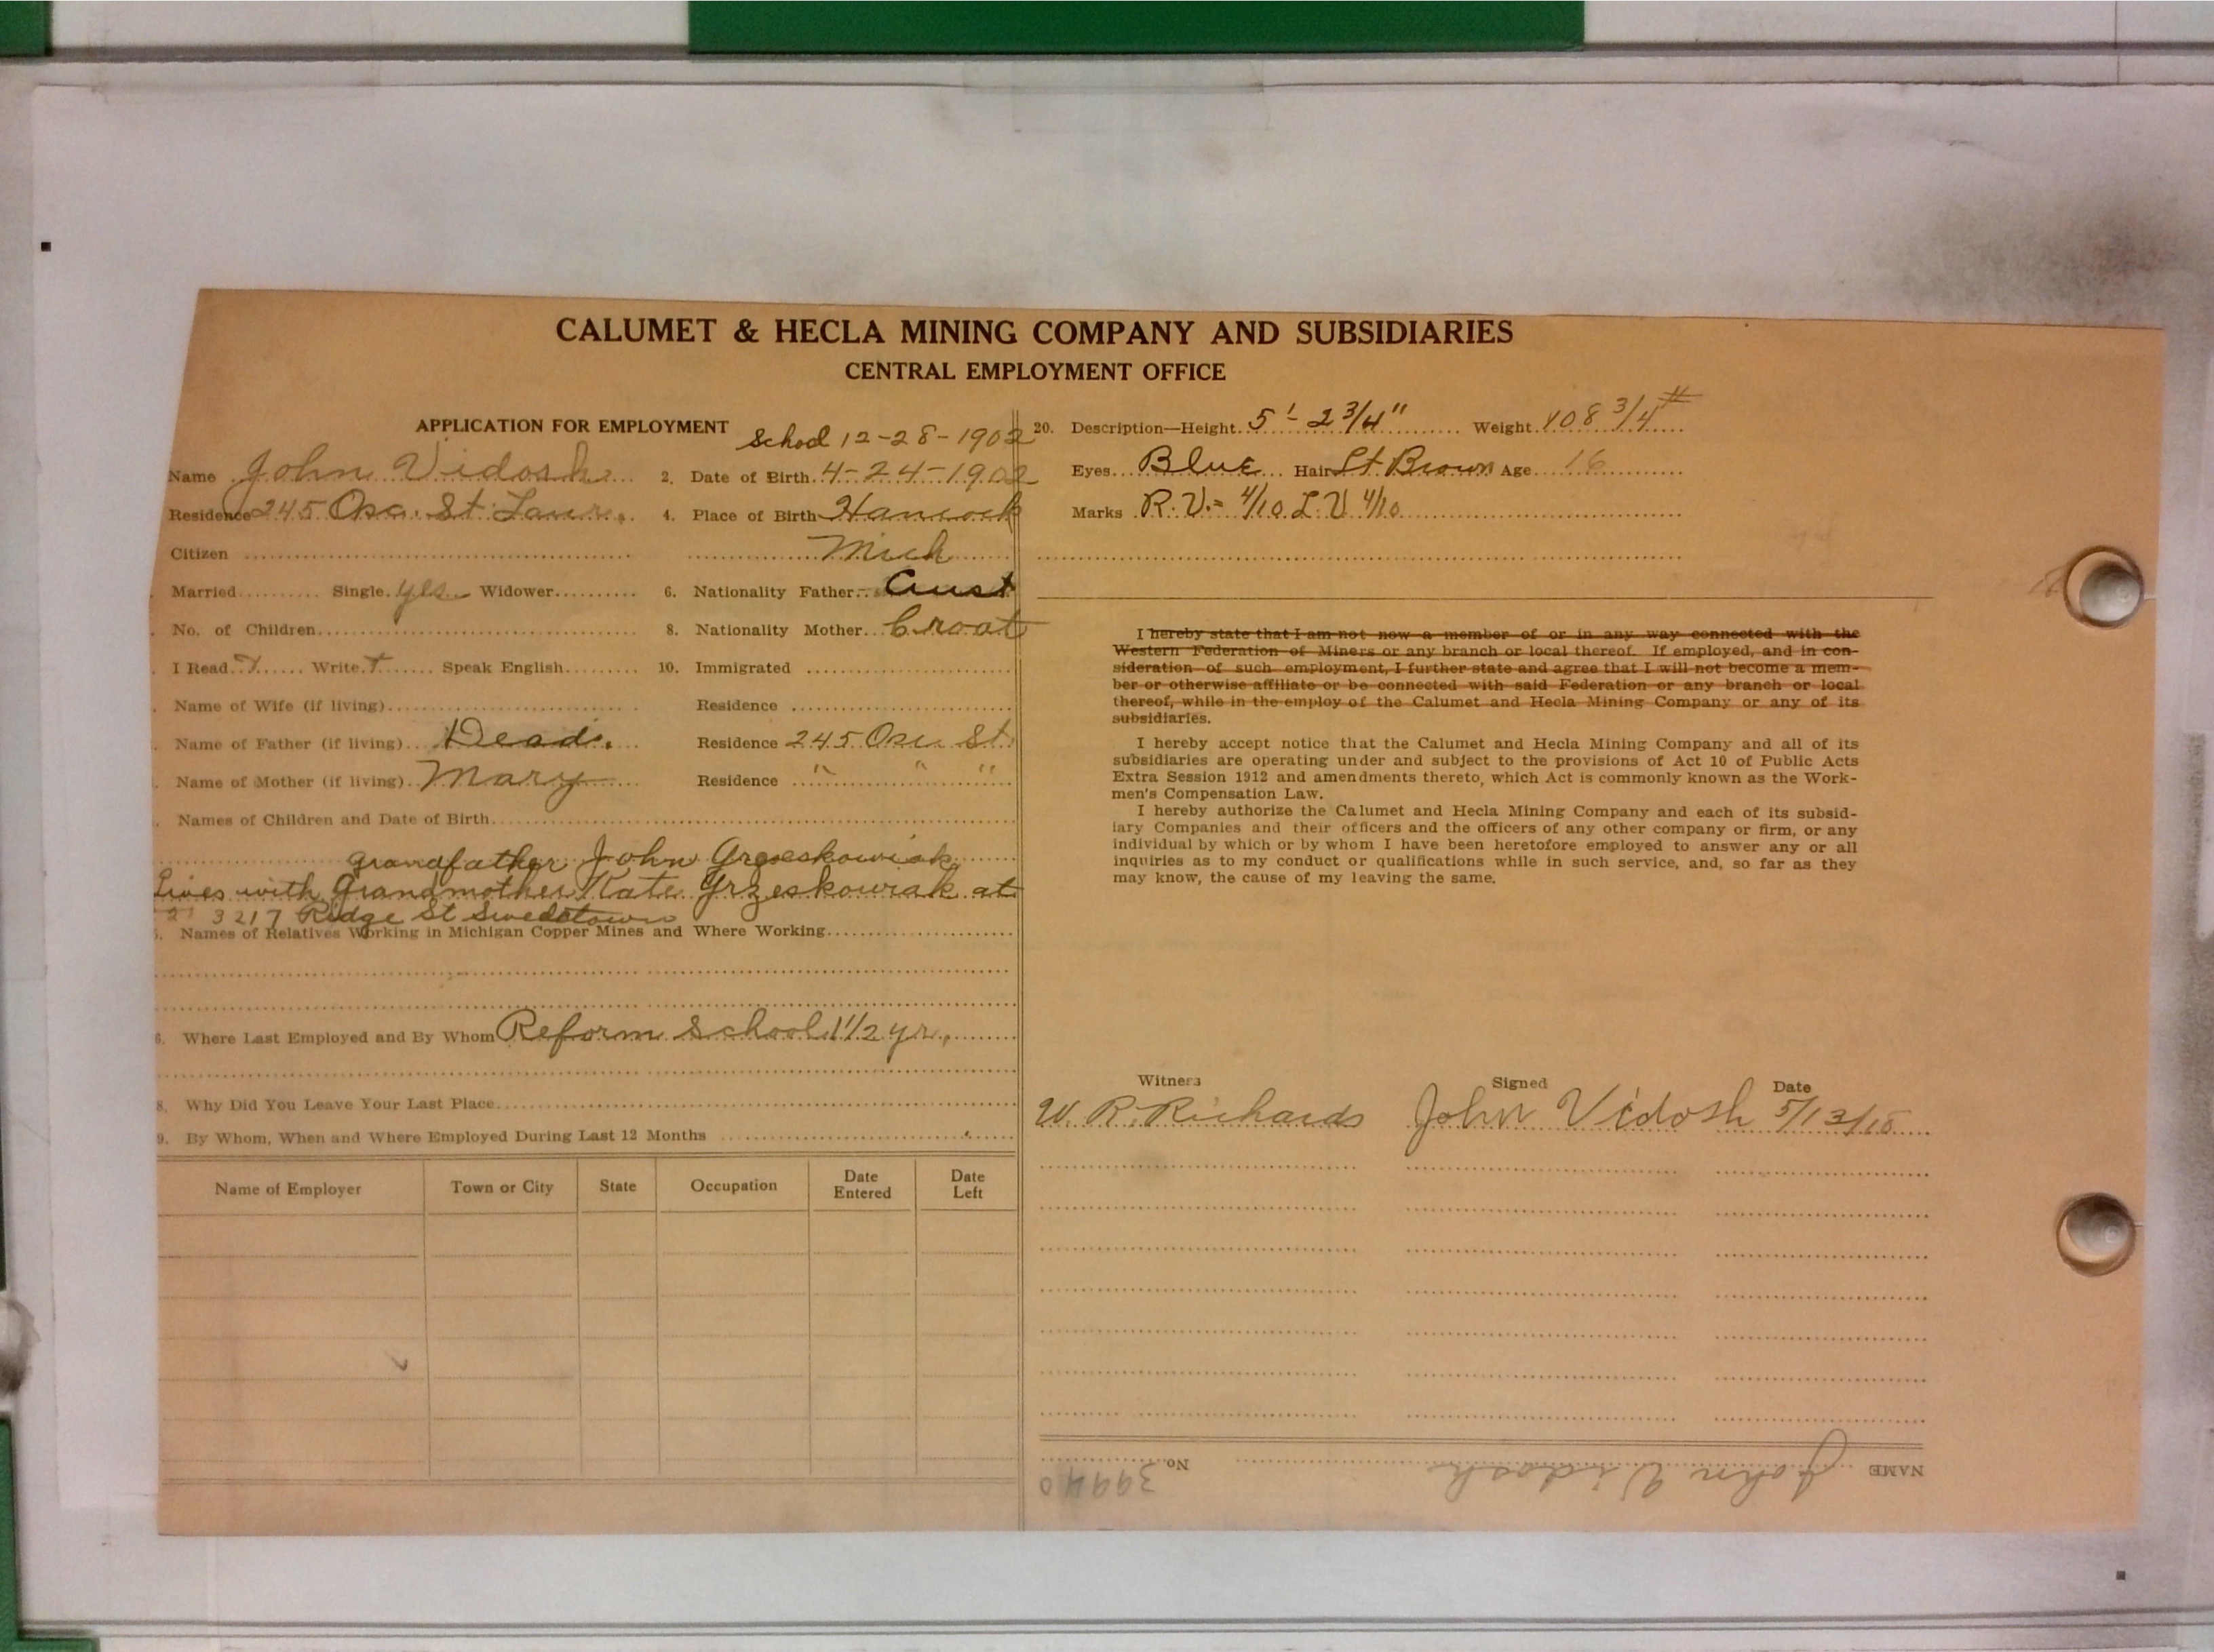 CALUMET & HECLA MINING COMPANY AND SUBSIDIARIES
CENTRAL EMPLOYMENT OFFICE
APPLICATION FOR EMPLOYMENT
School 12-28-1902
Name John Vidosh
2. Date of Birth 4-24-1902
Residence 245 Osc. St. Laur.
4. Place of Birth Hancock
Citizen
Mich
Married Single yes Widower
6. Nationality Father Aust
No. of Children
8. Nationality Mother Croat
I Read Write Speak English
10. Immigrated
Name of Wife (if living)
Residence
Name of Father (if living) Dead.
Residence 245 Osc. St.
Name of Mother (if living) Mary
Residence " " "
Names of Children and Date of Birth
grandfather John Grzeskowiak
Lives with Grandmother Kate Grzeskowiak at
3217 Ridge St Swedetown
5. Names of Relatives Working in Michigan Copper Mines and Where Working
6. Where Last Employed and By Whom Reform School 1 1/2 yr.
8. Why Did You Leave Your Last Place
9. By Whom, When and Where Employed During Last 12 Months
Name of Employer Town or City State Occupation Date Entered Date Left
20. Description—Height 5'-2 3/4" Weight 108 3/4 #
Eyes Blue Hair Lt Brown Age 16
Marks R.V.= 4/10 L.V 4/10
I hereby state that I am not now a member of or in any way connected with the
Western Federation of Miners or any branch or local thereof. If employed, and in con-
sideration of such employment, I further state and agree that I will not become a mem-
ber or otherwise affiliate or be connected with said Federation or any branch or local
thereof, while in the employ of the Calumet and Hecla Mining Company or any of its
subsidiaries.
I hereby accept notice that the Calumet and Hecla Mining Company and all of its
subsidiaries are operating under and subject to the provisions of Act 10 of Public Acts
Extra Session 1912 and amendments thereto, which Act is commonly known as the Work-
men's Compensation Law.
I hereby authorize the Calumet and Hecla Mining Company and each of its subsid-
iary Companies and their officers and the officers of any other company or firm, or any
individual by which or by whom I have been heretofore employed to answer any or all
inquiries as to my conduct or qualifications while in such service, and, so far as they
may know, the cause of my leaving the same.
Witness Signed Date
W. R. Richards John Vidosh 5/13/18
NAME John Vidosh No. 39940